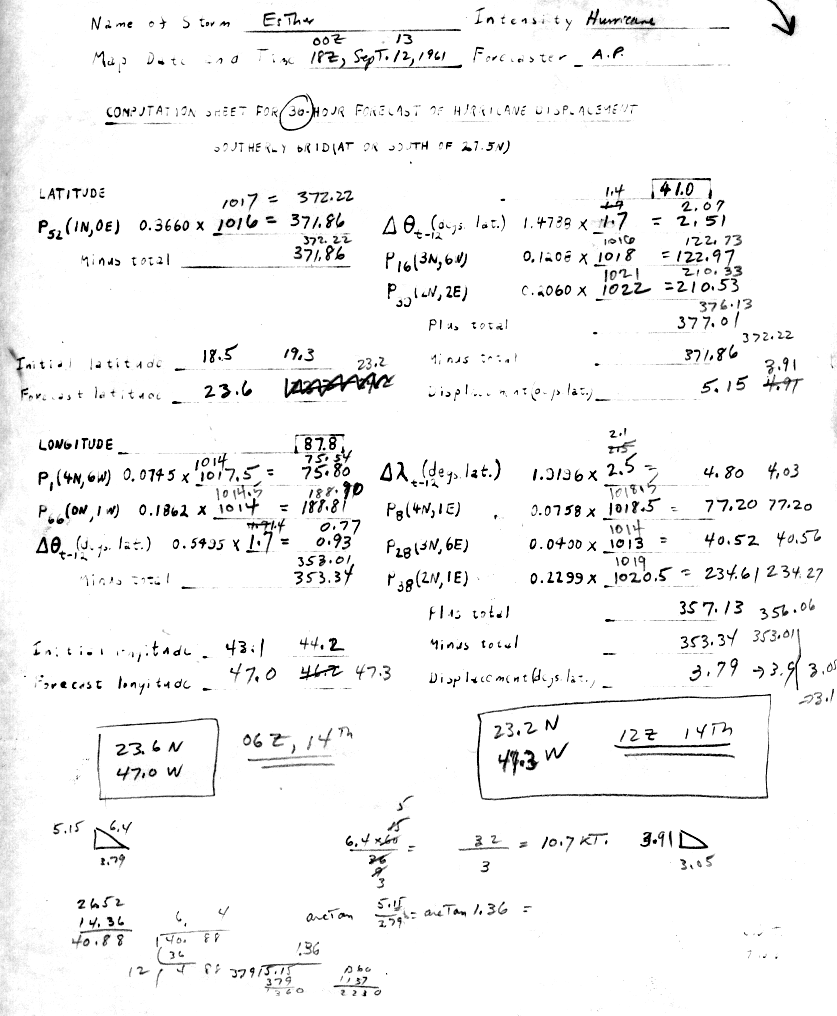 Name of Storm Esther Intensity Hurricane
00Z 13
Map Date and Time 18Z, Sept. 12, 1961 Forecaster A.P.
COMPUTATION SHEET FOR 36-HOUR FORECAST OF HURRICANE DISPLACEMENT
SOUTHERLY GRID (AT OR SOUTH OF 27.5N)
LATITUDE
1017 = 372.22
P52 (1N,0E) 0.3660 x 1016 = 371.86
372.22
Minus total 371.86
1.4 41.0
1.9 2.07
Δθt-12 (degs. lat.) x 1.7 = 2.51
1016 122.73
P16 (3N,6W) 0.1208 x 1018 = 122.97
1021 210.33
(2N,2E) 0.2060 x 1022 = 210.53
376.13
Plus total 377.01
372.22
Minus total 371.86
3.91
Displacement (degs. lat.) 5.15 4.91
Initial latitude 18.5 19.3
23.2
Forecast latitude 23.6
LONGITUDE 87.8
1014 75.54
P1 (4N,6W) 0.0745 x 1017.5 = 75.80
1014.5 188.90
P66 (0N,1W) 0.1862 x 1014 = 188.81
1.4 0.77
Δθt-12 (degs. lat.) x 1.7 = 0.93
353.01
Minus total 353.34
2.1
Δλt-12 (degs. lat.) x 2.5 = 4.80 4.03
1018.5
P8 (4N,1E) 0.0758 x 1018.5 = 77.20 77.20
1014
P28 (3N,6E) 0.0400 x 1013 = 40.52 40.56
1019
P38 (2N,1E) 0.2299 x 1020.5 = 234.61 234.27
Plus total 357.13 356.06
Minus total 353.34 353.01
Displacement (degs. lat.) 3.79 → 3.9 3.05
→ 3.1
Initial longitude 43.1 44.2
Forecast longitude 47.0 46.2 47.3
23.6 N
47.0 W
06Z, 14Th
23.2 N
47.3 W
12Z 14Th
5.15 6.4
3.79
5
15
6.4 x 60 =
36
9
3
32
3
= 10.7 KT.
3.91
3.05
26.52
14.36
40.88
6. 4
40. 88
36
12 4 88
1.36
379 5.15
379
1360
1137
2230
arcTan 5.15 = arcTan 1.36 =